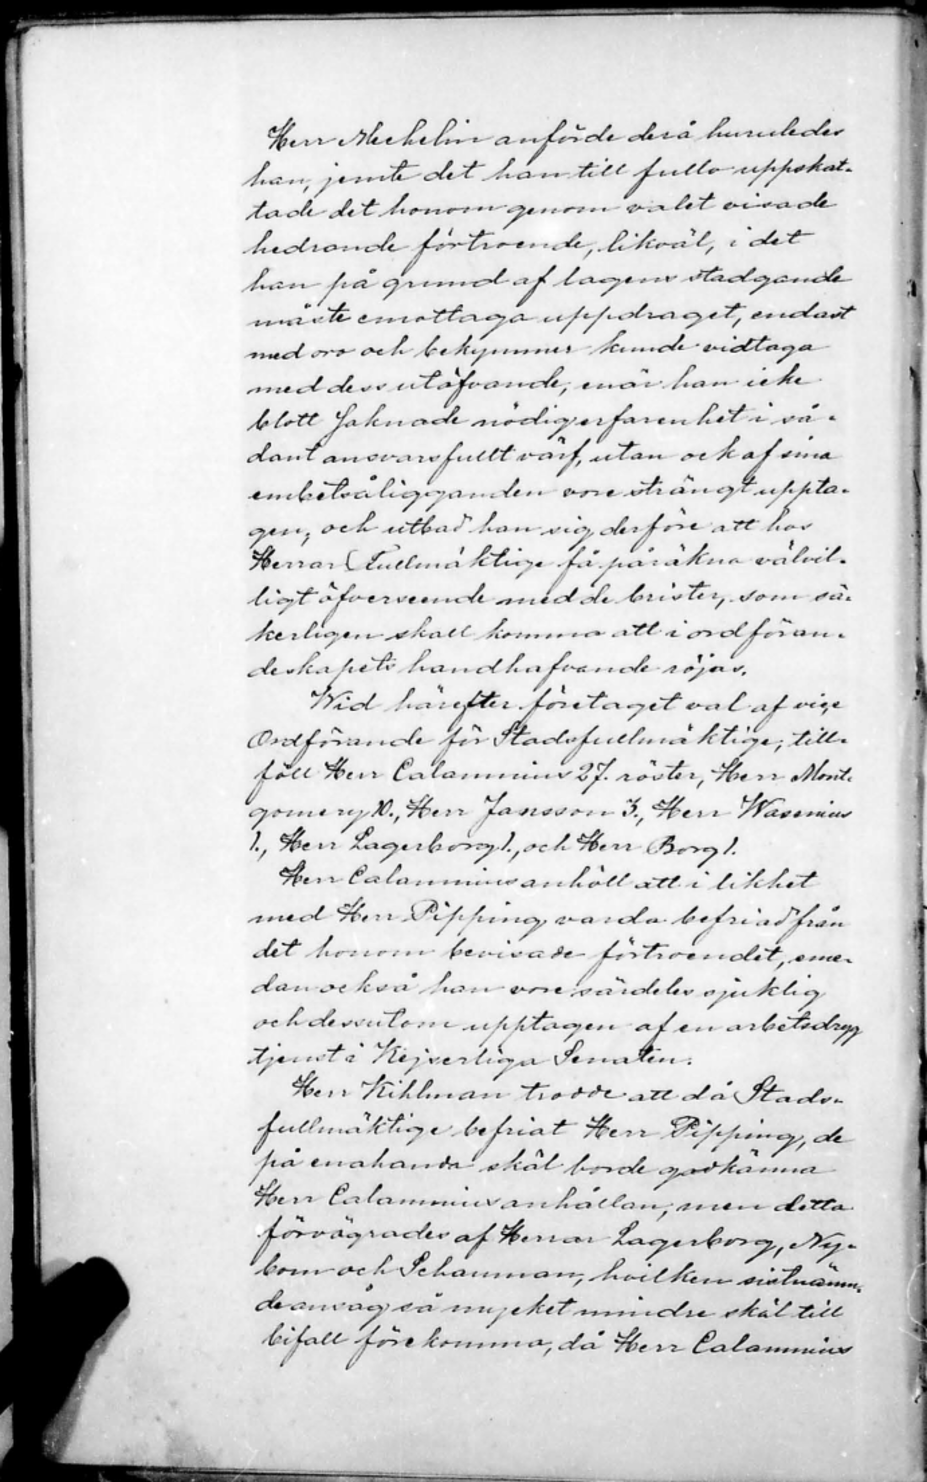 Herr Mechelin anförde derå huruledes
han, jemte det han till fullo uppskat-
tade det honom genom valet visade
hedrande förtroende, likväl, i det
han på grund af lagens stadgande
måste emottaga uppdraget, endast
med oro och bekymmer kunde vidtaga
med dess utöfvande, enär han icke
blott saknade nödig erfarenhet i så-
dant ansvarsfullt värf, utan ock af sina
embetsåligganden vore strängt uppta-
gen; och utbad han sig derföre att hos
Herrar Fullmäktige få påräkna välvil-
ligt öfverseende med de brister, som sä-
kerligen skall komma att i ordföran-
deskapets handhafvande röjas.
Wid härefter företaget val af vice
Ordförande för Stadsfullmäktige, till-
föll Herr Calamnius 27. röster, Herr Mont-
gomery 10., Herr Jansson 3., Herr Wasenius
1., Herr Lagerborg 1., och Herr Borg 1.
Herr Calamnius anhöll att i likhet
med Herr Pipping varda befriad från
det honom bevisade förtroendet, eme-
dan också han vore särdeles sjuklig
och dessutom upptagen af en arbetsdryg
tjenst i Kejserliga Senaten.
Herr Kihlman trodde att då Stads-
fullmäktige befriat Herr Pipping, de
på enahanda skäl borde godkänna
Herr Calamnius anhållan, men detta
förvägrades af Herrar Lagerborg, Ny-
bom och Schauman, hvilken sistnämn-
de ansåg så mycket mindre skäl till
bifall förekomma, då Herr Calamnius